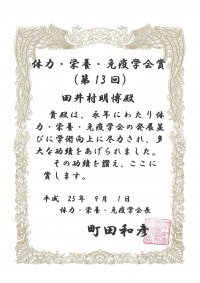 体力・栄養・免疫学会賞
(第13回)
田井村明博殿
貴殿は、永年にわたり体
力・栄養・免疫学会の発展並
びに学術向上に尽力され、多
大な功績をあげられました。
その功績を讃え、ここに
賞します。
平成 25年 9月 1日
体力・栄養・免疫学会長
町田和彦